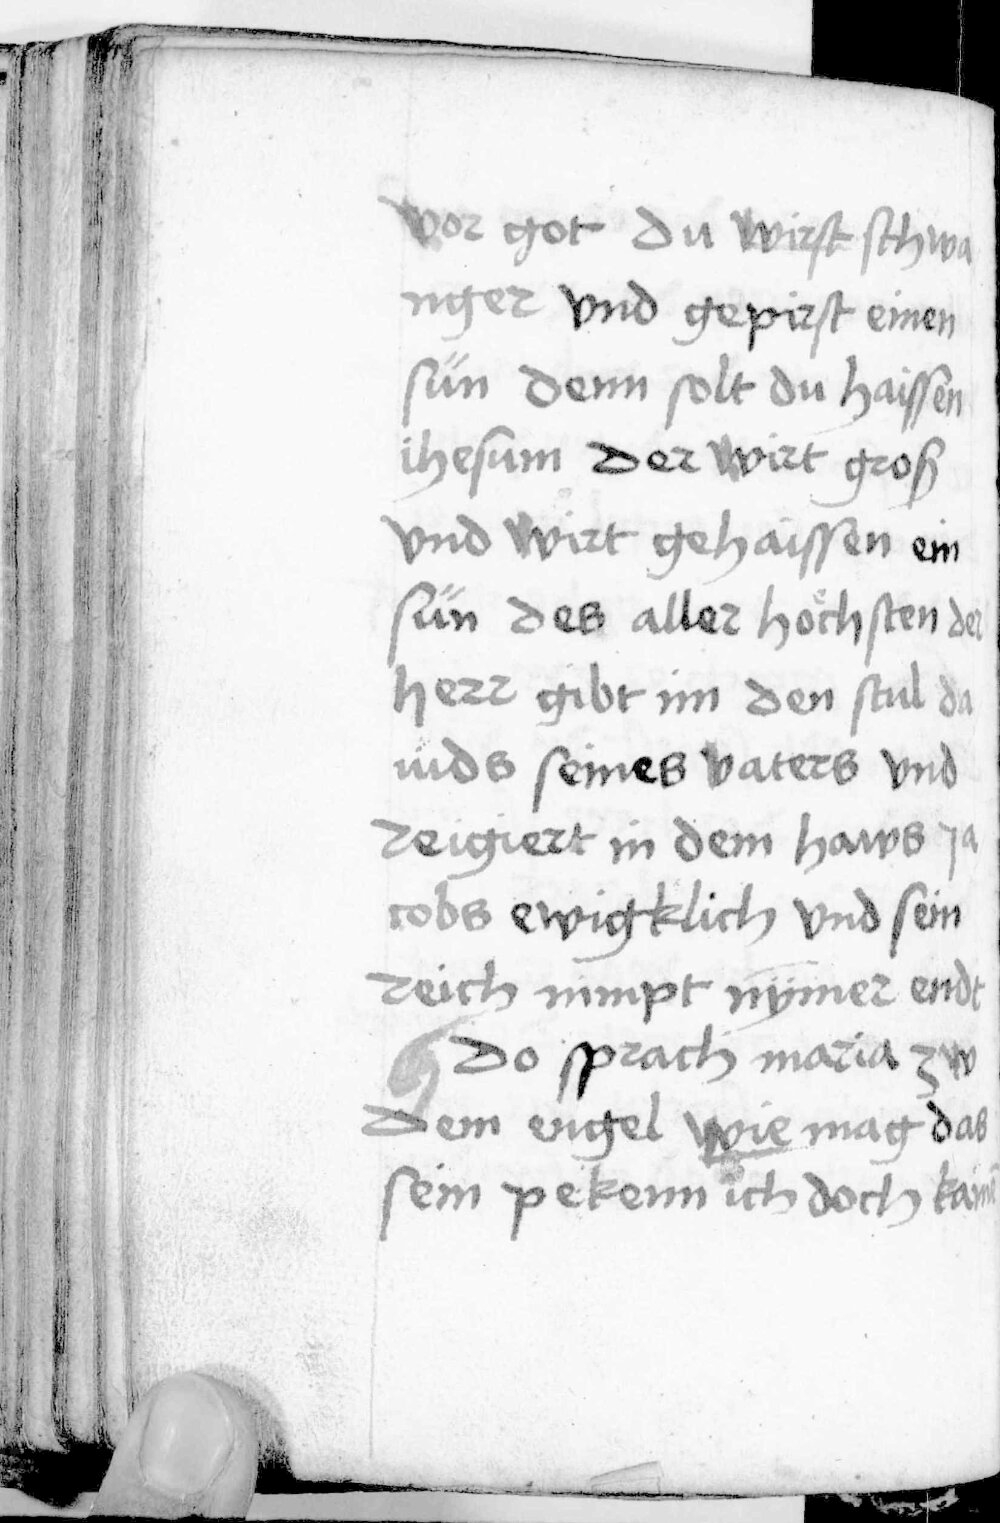 vor got du wirst schwa
nger vnd gepirst einen
sün denn solt du haissen
ihesum der wirt groß
vnd wirt gehaissen ein
sün des aller höchsten der
herr gibt im den stul da
uids seines vaters vnd
reigiert in dem haws ja
cobs ewigklich vnd sein
reich nimpt nÿmer endt
Do sprach maria zw
dem engel wie mag das
sein pekenn ich doch kain